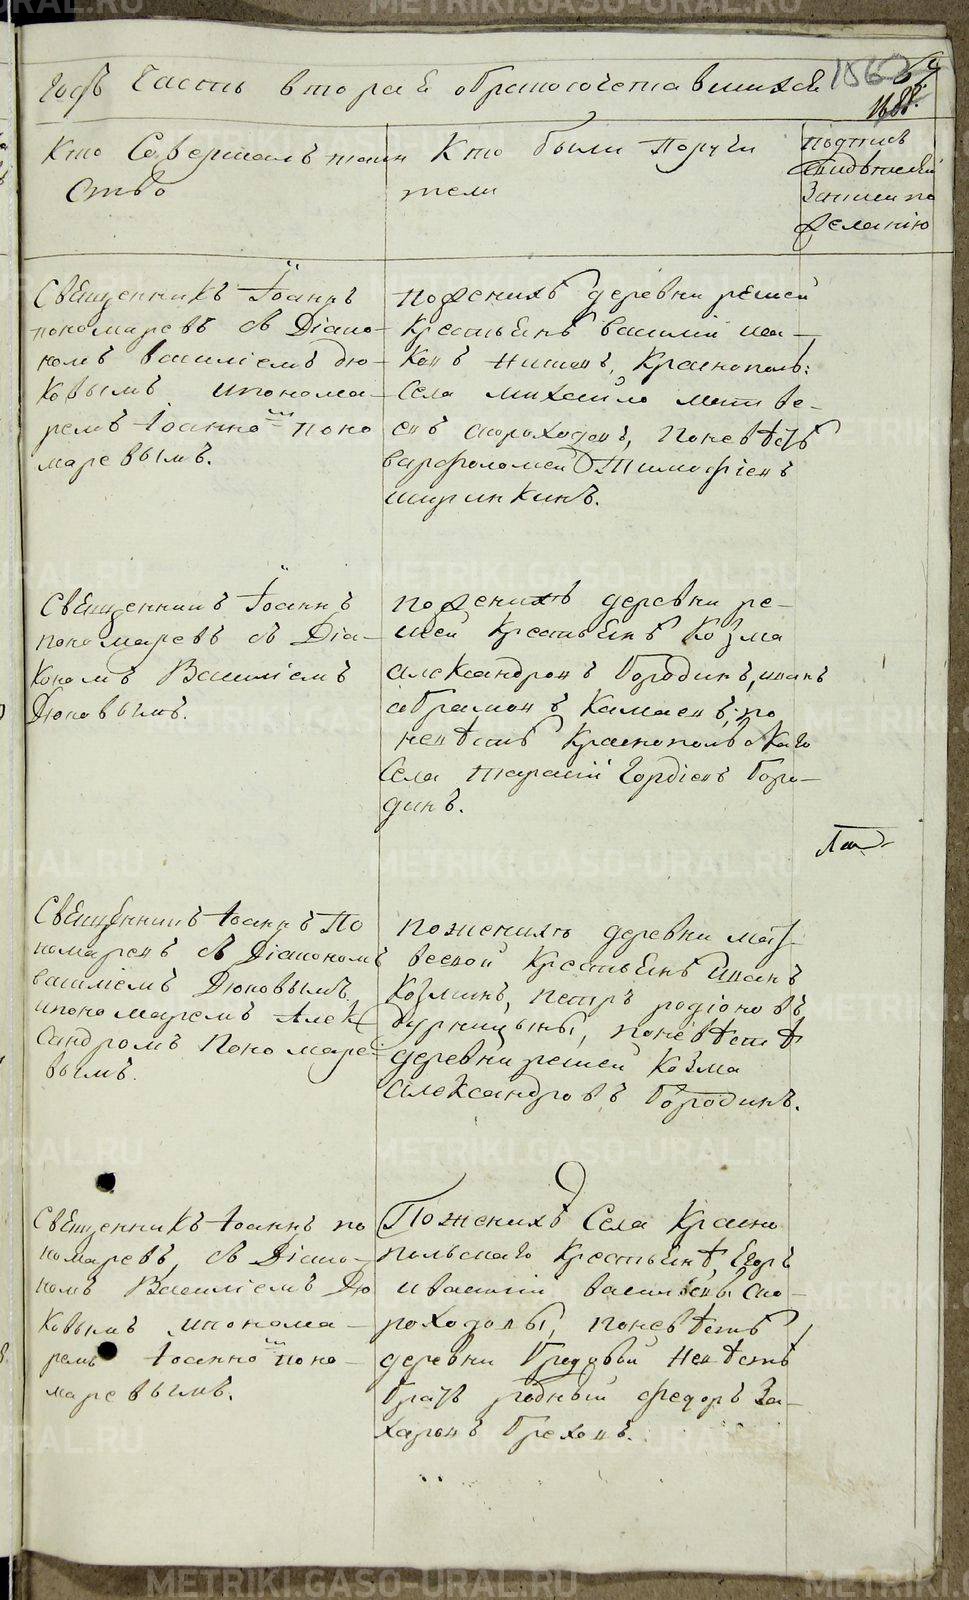 годъ Часть вторая о бракосочетавшихся
Кто Совершалъ таин
ство
Кто были Поручи
тели
подпись
свидѣтелей
Записи по
желанію
Священникъ Іоаннъ
пономаревъ съ Діако
номъ василіемъ дю
ковымъ ипонома
ремъ Іоанномъ поно
маревымъ.
поженихѣ деревни решей
Крестьянѣ василій ива
новъ, Краснополь:
села михайло матве
евъ скороходовъ, поневѣстѣ
варфоломей Тимофіевъ
ширинкинъ.
Священникъ Іоаннъ
пономаревъ съ Діа
кономъ Василіемъ
Дюковымъ.
поженихѣ деревни ре
шей Крестьянѣ Козма
александровъ Бородинъ, иванъ
абрамовъ Камаевъ, по
невѣстѣ Краснопольскаго
Села тарасій Гордіевъ Боро
динъ.
Священникъ Іоаннъ По
номаревъ съ Діакономъ
василіемъ Дюковымъ
ипономаремъ Алек
сандромъ Пономаре
вымъ.
поженихѣ деревни мат
веевой Крестьянѣ Иванъ
Козминъ, петръ родіоновъ
бурницыны, поневѣстѣ
деревни решей Козма
александровъ Бородинъ.
Священникъ Іоаннъ по
номаревъ, съ Діако
номъ Василіемъ Дю
ковымъ ипонома
ремъ Іоанномъ поно
маревымъ.
Поженихѣ Села Красно
польскаго Крестьянѣ, Егоръ
ивасилій васильевы ско
роходовы, поневѣстѣ
деревни Бродовой невѣстѣ
братъ родный федоръ За
харовъ Греховъ.
METRIKI.GASO-URAL.RU